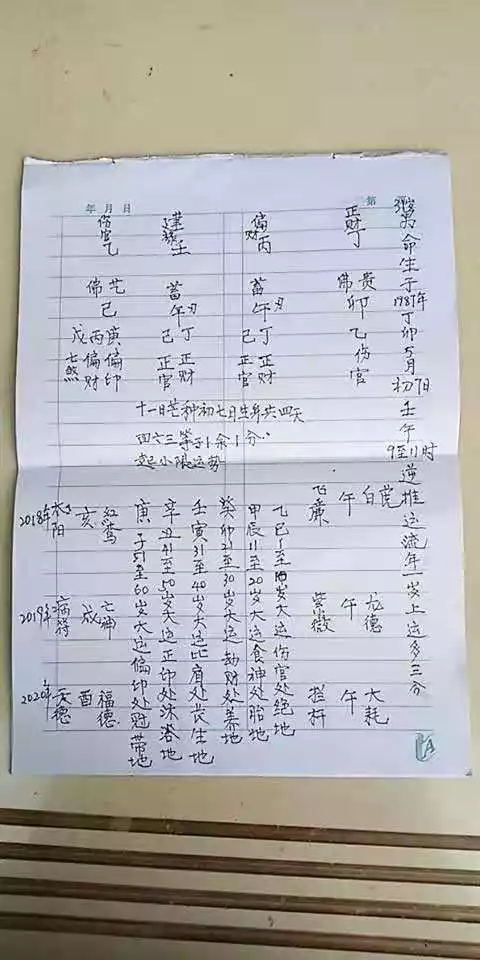 年 月 日
第
命生于1987年丁卯5月初7日壬午9至11时逆推运流年一岁上运多三分
正财丁
佛贵
卯
乙伤官
偏财丙
畜
午刃
己丁
正官 正财
建禄壬
畜
午刃
己丁
正官 正财
伤官乙
佛艺
巳
戊丙庚
七煞 偏财 偏印
十一日芒种初七日生年共四天
四六三等于1余1分
起小限运势
白虎
午
飞廉
龙德
午
紫微
大耗
午
拦杆
乙巳1至10岁大运伤官处绝地
甲辰11至20岁大运食神处胎地
癸卯21至30岁大运劫财处养地
壬寅31至40岁大运比肩处长生地
辛丑41至50岁大运正印处沐浴地
庚子51至60岁大运偏印处冠带地
2018年太阳 亥 红鸾
2019年病符 戌
2020年天德 酉 福德